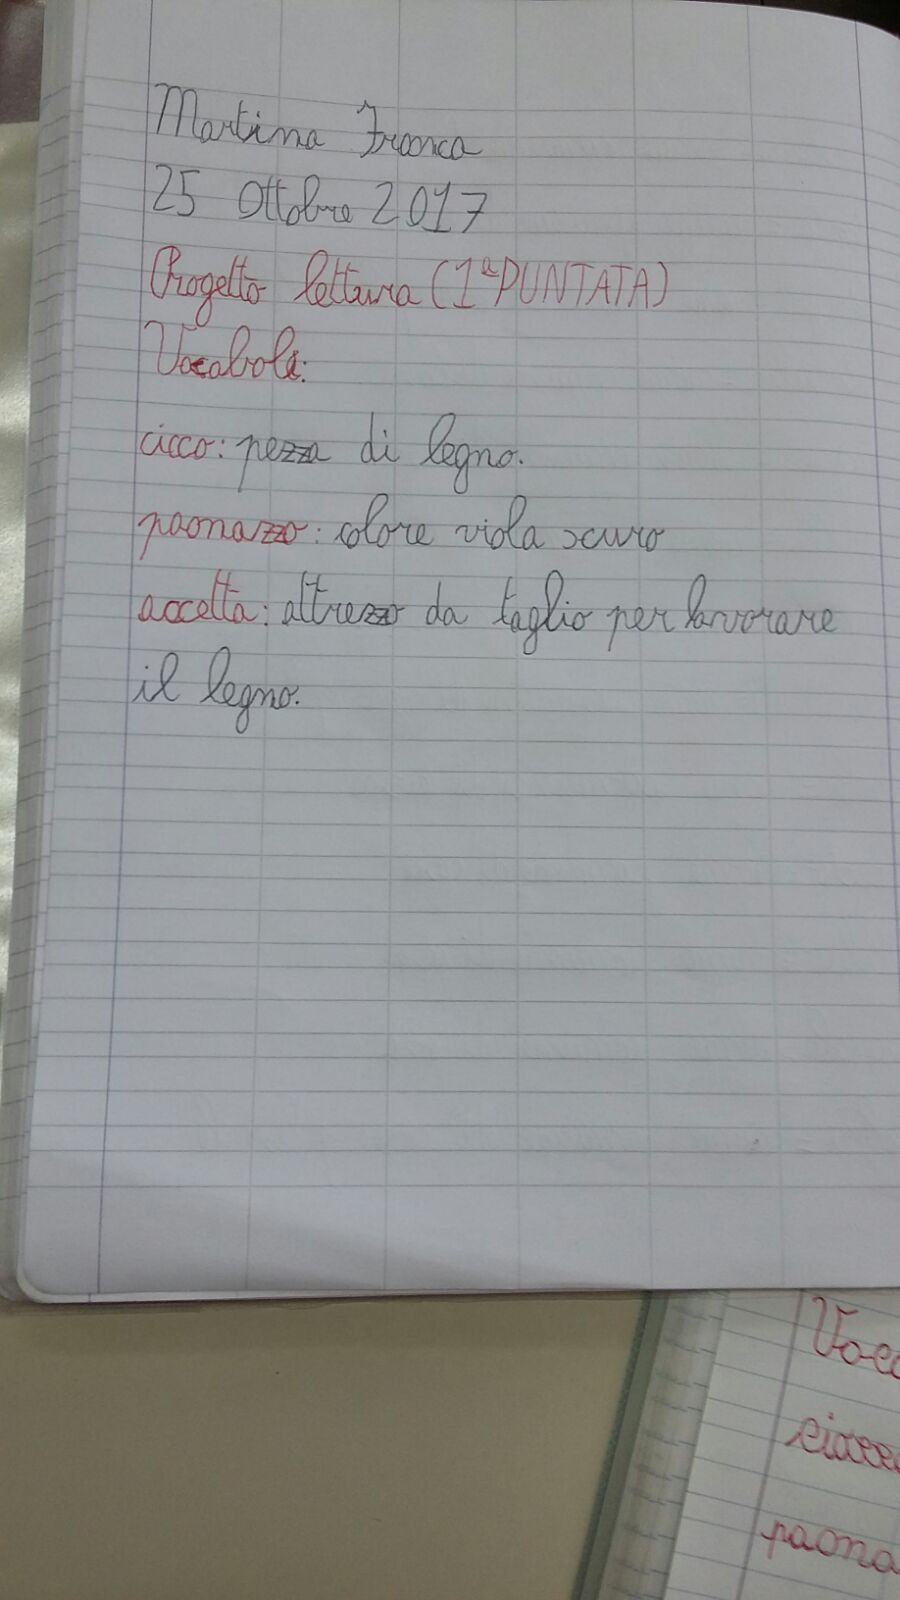 Martina Franca
25 Ottobre 2017
Progetto lettura (1ª PUNTATA)
Vocaboli:
cicco: pezza di legno.
paonazzo: colore viola scuro
accetta: attrezzo da taglio per lavorare
il legno.
Voc
ciocc
paona